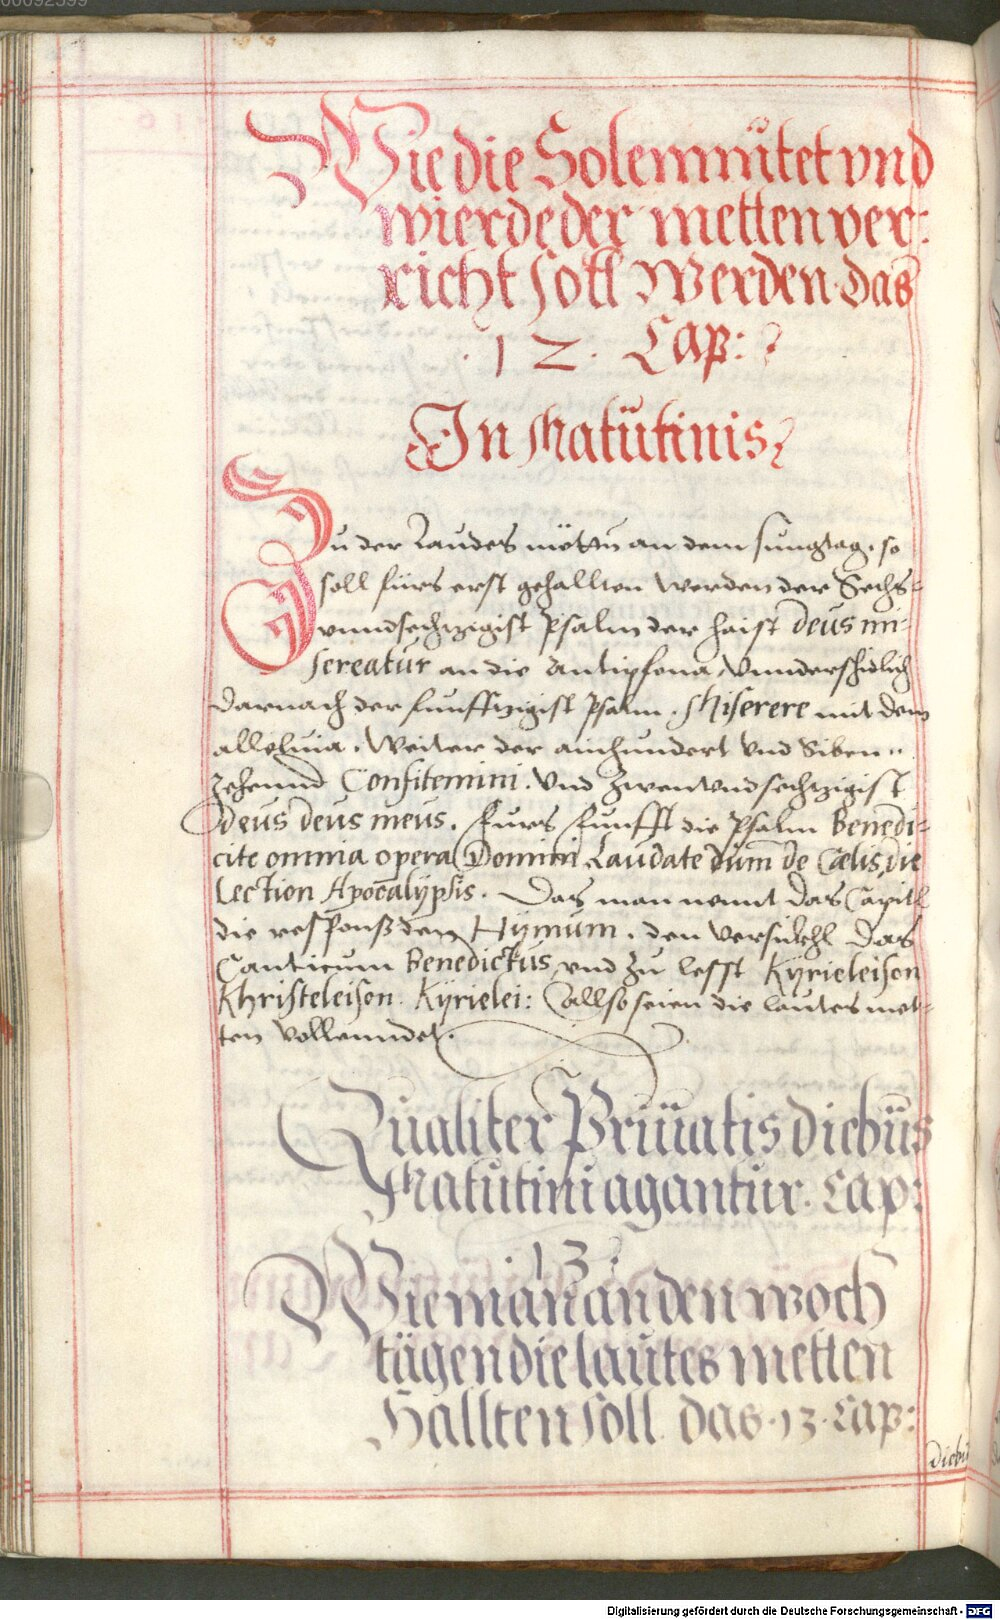 Wie die Solemnitet vnd
wierde der metten ver:
richt soll werden. das
.12. Cap:
In Matutinis
Zu der Laudes mötten an dem sunntag. so
soll fürs erst gehallten werden der Sechs=
vnndsechtzigist Psalm der haist Deus mi=
sereatur an die Antipfona vnnderschidlich
darnach der funfftzigist Psalm. Miserere mit dem
alleluia. Weiter der ainhundert vnd Siben=
zehennd Confitemini. vnd zwenvndsechtzigist
Deus Deus meus. Fürs Funfft die Psalm Benedi=
cite omnia opera Domini Laudate dum de Cœlis, die
Lection Apocalypsis. Das man nennt das Capitl
die respons den Hymum. den versickhl das
Canticum Benedictus vnd zu lesst Kÿrieleison
Khristeleison. Kÿrielei: allso seien die lautes met=
ten vollenndet.
Qualiter Priuatis diebus
Matutini agantur. Cap:
13
Wie man an den woch
tägen die lautes metten
Hallten soll. das. 13. Cap:
diebus
Digitalisierung gefördert durch die Deutsche Forschungsgemeinschaft - DFG